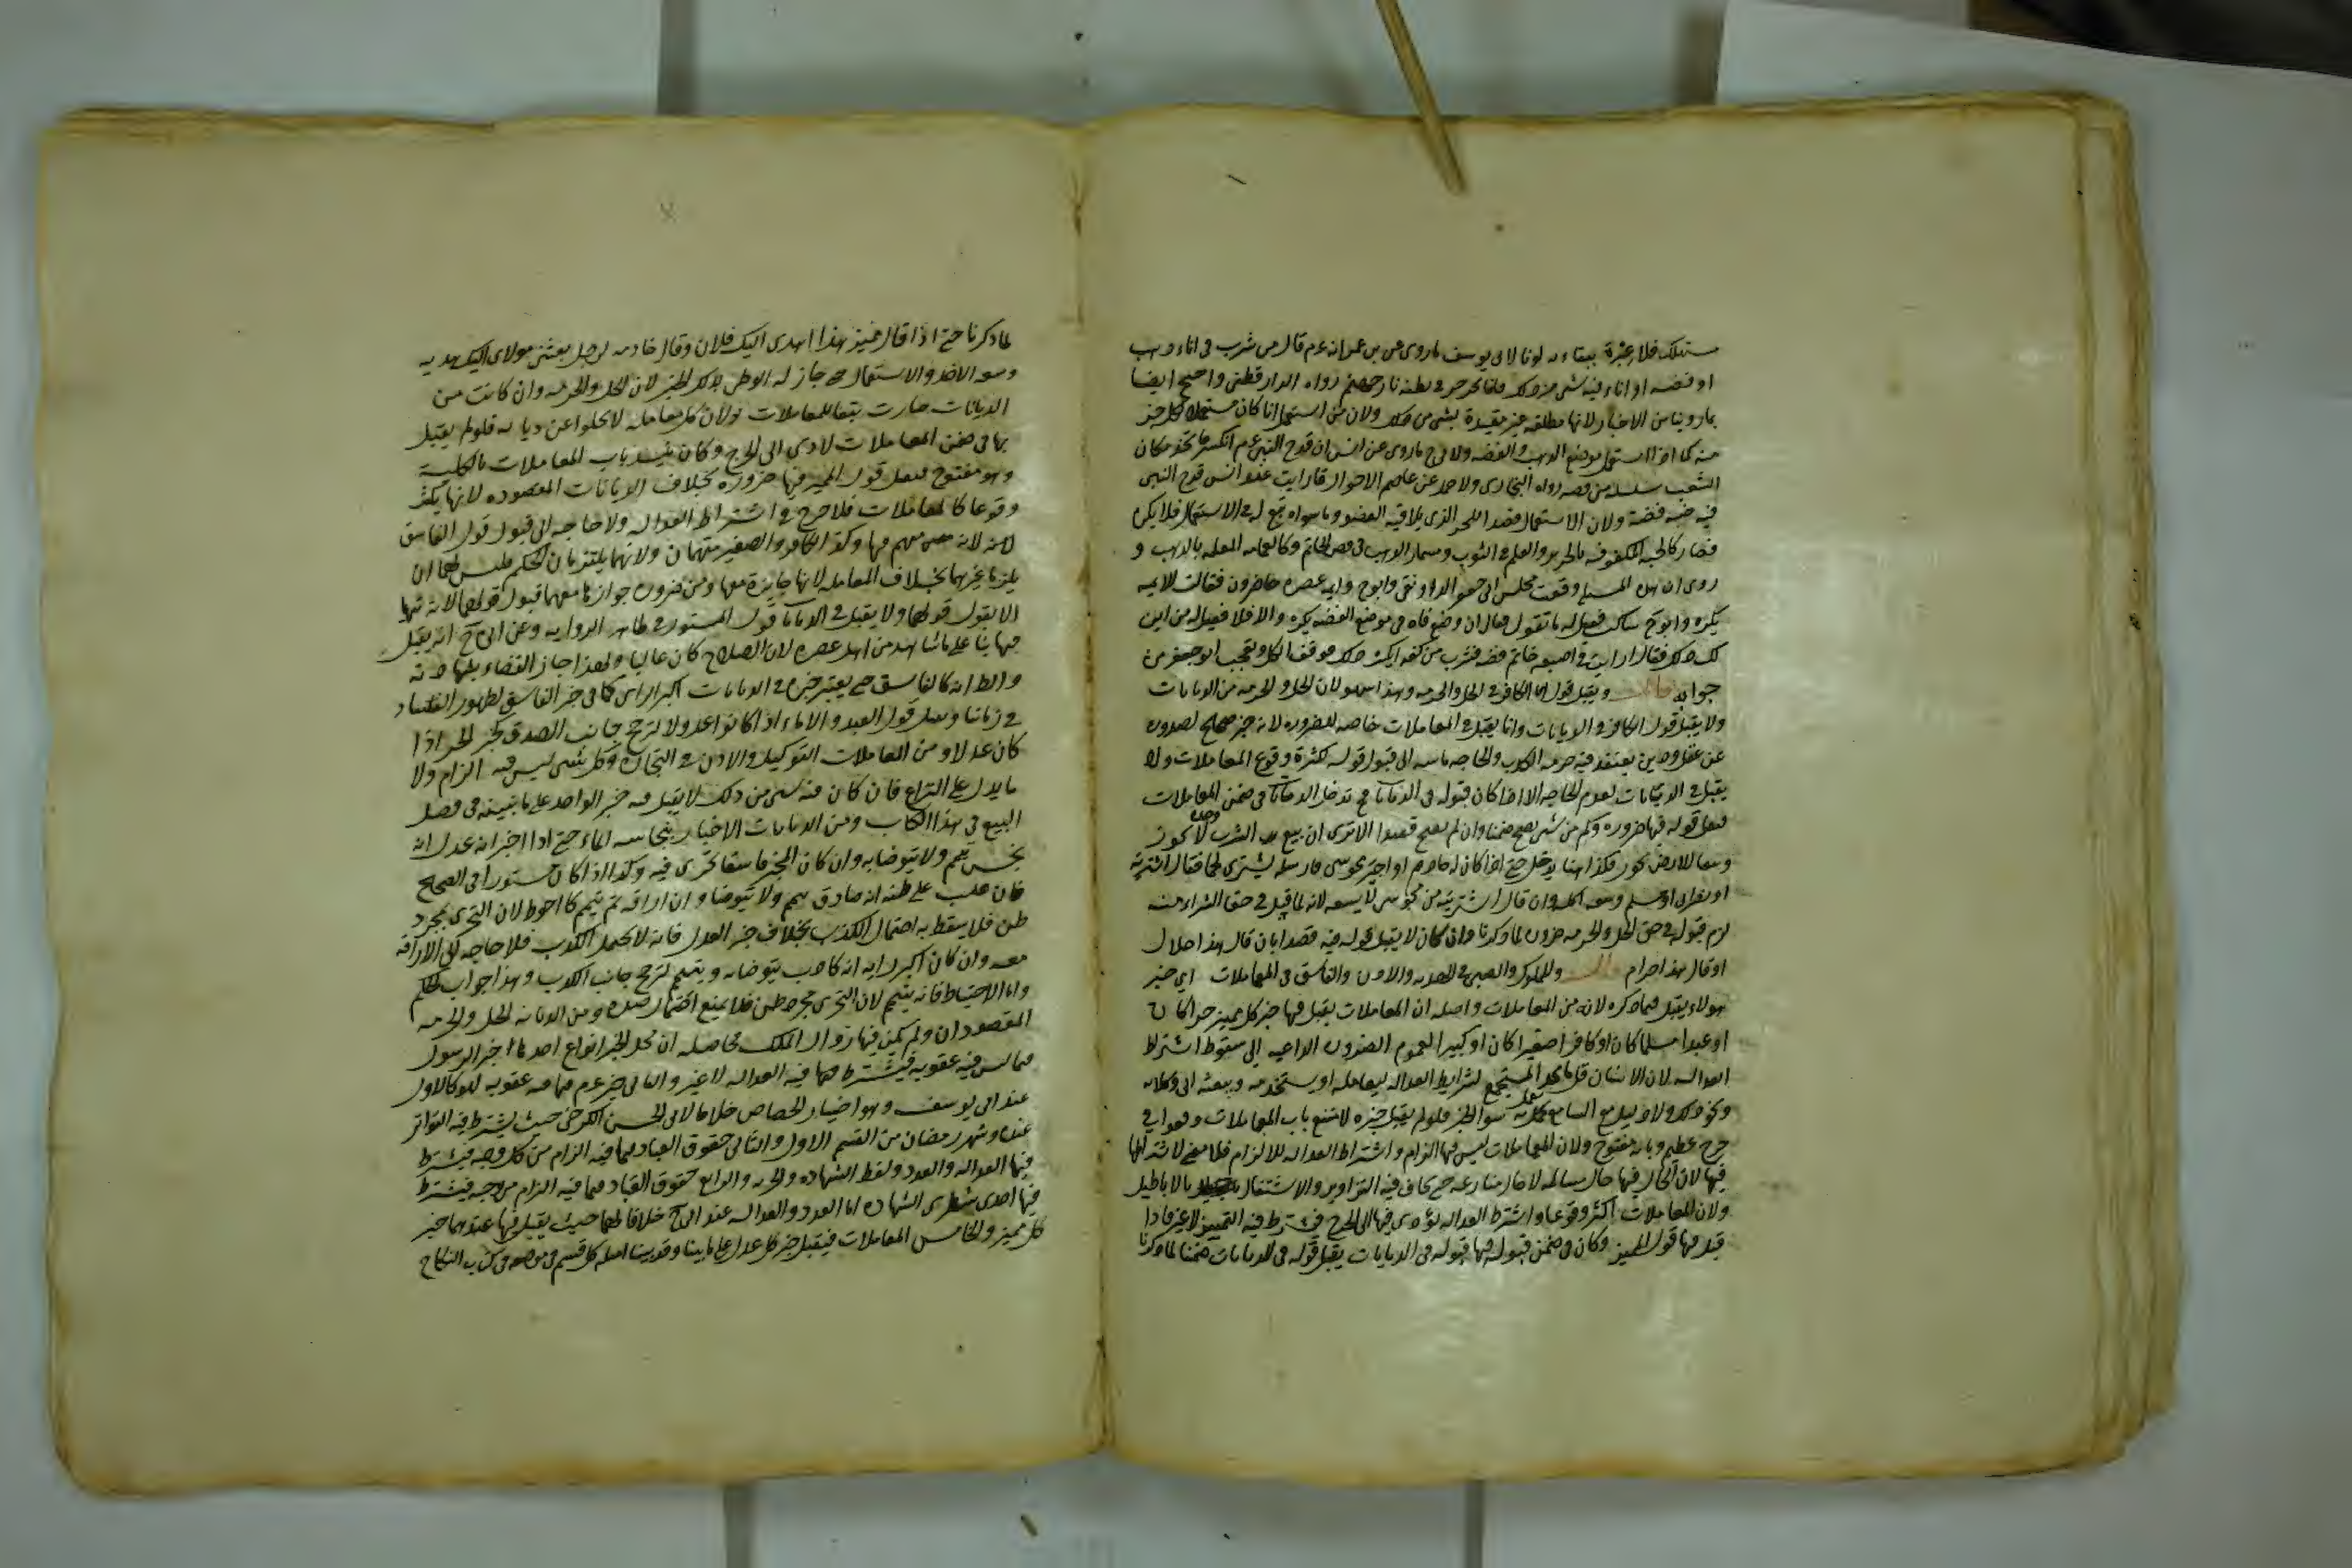 مستهلك فلا عبرة ببقائه لونا لابي يوسف ماروى عن بن عمر انه عم قال من شرب في اناء ذهب
او فضة او اناء فيه شي من ذلك فانما يجرجر في بطنه نار جهنم رواه الدار قطني واحتج ايضا
بما روينا من الاخبار لانها مطلقه غير مقيدة بشي من ذلك ولان من استعمل انا كان مستعملا لكل جزء
منه كما اذا استعمل موضع الذهب والفضه ولابي ح ماروى عن انس ان قدح النبي عم انكسر فاتخذ مكان
الشعب سلسله من فضه رواه البخاري ولاحمد عن عاصم الاحول قال رايت عند انس قدح النبي
فيه ضبة فضة ولان الاستعمال قصدا للجزء الذي يلاقيه العضو وما سواه تبع له في الاستعمال فلا يكره
فصار كالجبة المكفوفه بالحرير والعلم في الثوب ومسمار الذهب في فص الخاتم وكالعمامه المعلمه بالذهب و
روى ان هذه المسئله وقعت في مجلس ابي جعفر الدوانقي وابو ح وايمه عصره حاضرون فقالت الايمه
يكره وابو ح ساكت فقيل له ما تقول فقال ان وضع فاه في موضع الفضه يكره والا فلا فقيل له من اين
لك ذلك فقال ارايت لو في اصبعه خاتم فضه فشرب من كفه ايكره ذلك فوقف الكل وتعجب ابو جعفر من
جوابه قال ويقبل قول الكافر في الحل والحرمه وهذا سهو لان الحل والحرمه من الديانات
ولا يقبل قول الكافر في الديانات وانما يقبل في المعاملات خاصه للضروره لانه خبر صحيح لصدوره
عن عقل ودين يعتقد فيه حرمه الكذب والحاجه ماسه الى قبول قوله لكثرة وقوع المعاملات ولا
يقبل في الديانات لعدم الحاجه الا اذا كان قبوله في الديانات تدخل الديانات في ضمن المعاملات
فيقبل قوله فيها ضروره وكم من شي يصح ضمنا وان لم يصح قصدا الا ترى ان بيع الشرب وحده لا يجوز
وتبعا للارض يجوز فكذا هنا يدخل حتى اذا كان له خادم او اجير مجوسي فارسله ليشتري لحما فقال اشتريته
من نصراني او مسلم وسعه اكله وان قال اشتريته من مجوسي لا يسعه لانه لما قبل في حق الشراء منه
لزم قبوله في حق الحل والحرمه ضروره لما ذكرنا وان كان لا يقبل قوله فيه قصدا بان قال هذا حلال
او قال هذا حرام قال والمملوك والصبي في الهديه والاذن والفاسق في المعاملات اي خبر
هولاء يقبل فيما ذكره لانه من المعاملات واصله ان المعاملات يقبل فيها خبر كل مميز حرا كان
او عبدا مسلما كان او كافرا صغيرا كان او كبيرا لعموم الضروره الداعيه الى سقوط اشتراط
العداله لان الانسان قل ما يجد المستجمع لشرايط العداله ليعامله او يستخدمه ويبعثه الى وكلائه
ونحو ذلك ولا دليل مع السامع يعمل به سوى الخبر فلو لم يقبل خبره لامتنع باب المعاملات ووقعوا في
حرج عظيم وبابه مفتوح ولان المعاملات ليس فيها الزام واشتراط العداله للالزام فلا معنى لاشتراطها
فيها لان الحال فيها حال مسالمه لا حال منازعه حتى يخاف فيه التزاوير والاشتغال بالاباطيل
ولان المعاملات اكثر وقوعا واشتراط العداله يؤدي فيها الى الحرج فيشترط فيه التمييز لا غير فاذا
قبل فيها قول المميز وكان في ضمن قبوله فيها قبوله في الديانات يقبل قوله في الديانات ضمنا لما ذكرنا
لما ذكرنا حتى اذا قال مميز هذا اهدى اليك فلان وقال خادمه لرجل بعثني مولاي اليك هديه
وسعه الاخذ والاستعمال حتى جاز له الوطي بذلك الخبر لان الحل والحرمه وان كانت من
الديانات صارت تبعا للمعاملات ولان كل معامله لا تخلوا عن ديانه فلو لم يقبل
بها في ضمن المعاملات لادى الى الحرج وكان ينسد باب المعاملات بالكليه
وهو مفتوح فيقبل قول المميز فيها ضروره بخلاف الديانات المقصوده لانها لا يكثر
وقوعا كالمعاملات فلا حرج في اشتراط العداله ولا حاجه الى قبول قول الفاسق
لانه متهم فيها وكذا الكافر والصغير متهمان ولانهما لا يلتزمان الحكم فليس لهما ان
يلزما غيرهما بخلاف المعامله لانها جايزة معهما ومن ضروره جوازها معهما قبول قولهما لانه لا يتهيا
الا بقبول قولهما ولا يقبل في الديانات قول المستور في ظاهر الروايه وعن ابي ح انه يقبل
فيها بنا على ما شاهد من اهل عصره لان الصلاح كان غالبا ولهذا جاز القضاء بشهادته
والظاهر انه كالفاسق حتى يعتبر خبره في الديانات اكبر الراي كما في خبر الفاسق لظهور الفساد
في زماننا ويقبل قول العبد والاماء اذا كانوا عدولا لترجح جانب الصدق كخبر الحر اذا
كان عدلا ومن المعاملات التوكيل والاذن في التجاره وكل شي ليس فيه الزام ولا
ما يدل على النزاع فان كان فيه شي من ذلك لا يقبل فيه خبر الواحد على ما نبينه في فصل
البيع في هذا الكتاب ومن الديانات الاخبار بنجاسه الماء حتى اذا اخبر انه عدل انه
نجس تيمم ولا يتوضا به وان كان المخبر فاسقا تحرى فيه وكذا اذا كان مستورا في الصحيح
فان غلب على ظنه انه صادق تيمم ولا يتوضا وان اراقه ثم تيمم كان احوط لان التحري مجرد
ظن فلا يسقط به احتمال الكذب بخلاف خبر العدل فانه لا يحتمل الكذب فلا حاجه الى الاراقه
معه وان كان اكبر رايه انه كاذب يتوضا به ويتيمم لترجح جانب الكذب وهذا جواب الحكم
واما الاحتياط فانه يتيمم لان التحري مجرد ظن فلا يمنع احتمال ضده ومن الديانه الحل والحرمه
المقصودان ولم يكن فيها زوال الملك فحاصله ان محل الخبر انواع احدها اخبار الرسول
فيما ليس فيه عقوبه فيشترط فيها فيه العداله لا غير والثاني خبر عم فيما فيه عقوبه فهو كالاول
عند ابي يوسف وهو اختيار الجصاص خلافا لابي الحسن الكرخي حيث يشترط فيه التواتر
عنده وشهر رمضان من القسم الاول والثاني حقوق العباد فيما فيه الزام من كل وجه فيشترط
فيها العداله والعدد ولفظ الشهاده والحريه والرابع حقوق العباد فيما فيه الزام من وجه فيشترط
فيها احدى شطري الشهاده اما العدد او العداله عند ابي ح خلافا لهما حيث يقبل فيها عندهما خبر
كل مميز والخامس المعاملات فيقبل خبر كل عدل على ما بينا وقد بينا اصله كل قسم في موضعه في كتاب النكاح